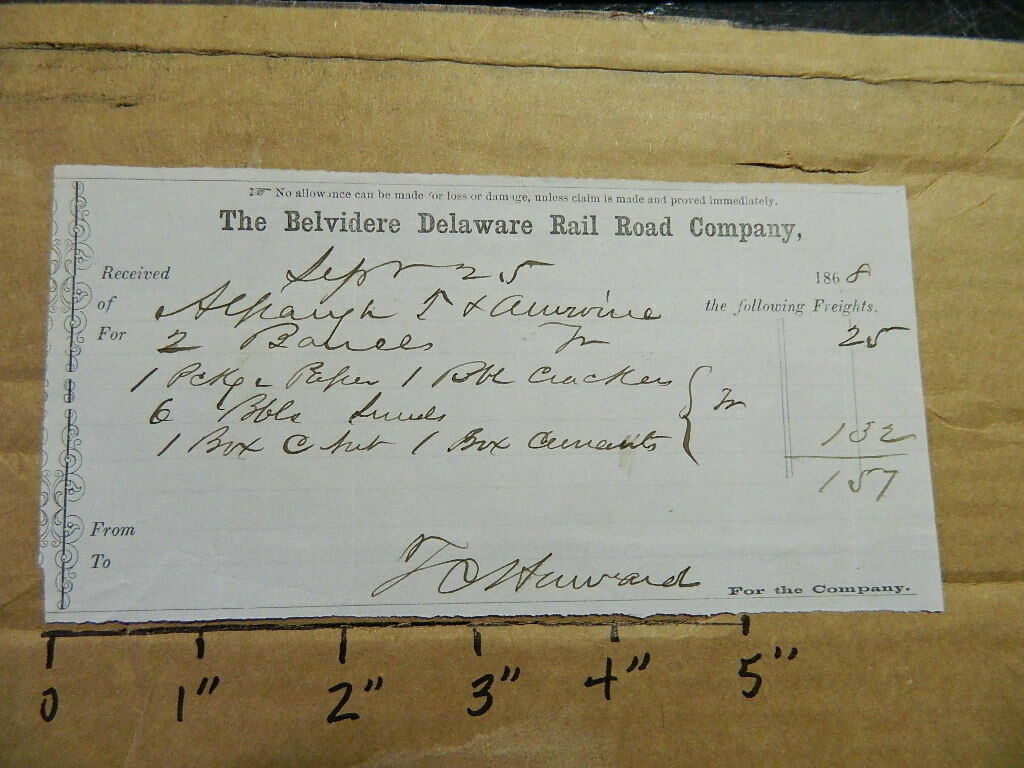 ☞ No allowance can be made for loss or damage, unless claim is made and proved immediately.
The Belvidere Delaware Rail Road Company,
Received Sept 25 1868
of Alpaugh T & the following Freights.
For 2 25
1 Pckge Paper 1 Bbl Crackers
6 Bbls
1 Box C Nut 1 Box Currants 132
157
From
To
Howard For the Company.
0 1" 2" 3" 4" 5"